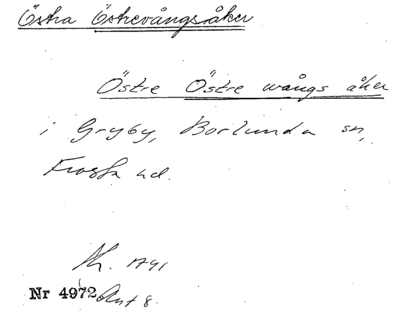 Östra Östrevångsåker
Östre Östre wångs åker
i Gryby, Borlunda sn,
Frosta hd.
1791
Nr 4972 Akt 8.